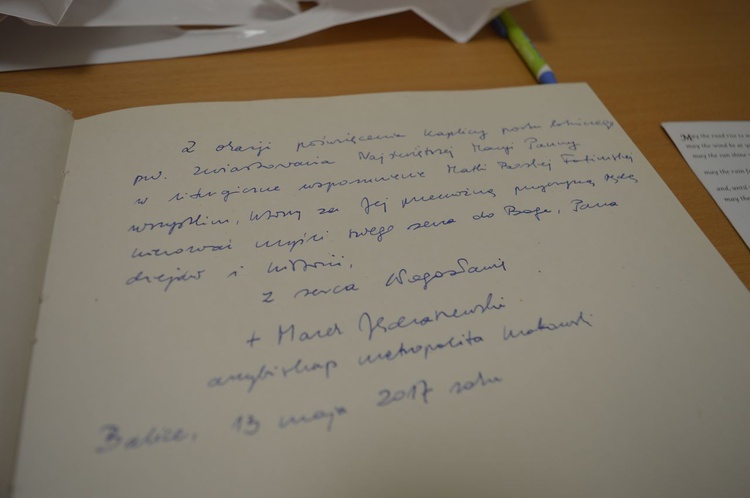 Z okazji poświęcenia kaplicy portu lotniczego
pw. Zwiastowania Najświętszej Maryi Panny
w liturgiczne wspomnienie Matki Boskiej Fatimskiej
wszystkim, którzy za Jej przemożną przyczyną będą
kierować myśli swego serca do Boga, Pana
dziejów i historii,
z serca błogosławię
+ Marek Jędraszewski
arcybiskup metropolita krakowski
Balice, 13 maja 2017 roku
May the road rise to
may the wind be
may the sun shine
may the rain
and, until
may the